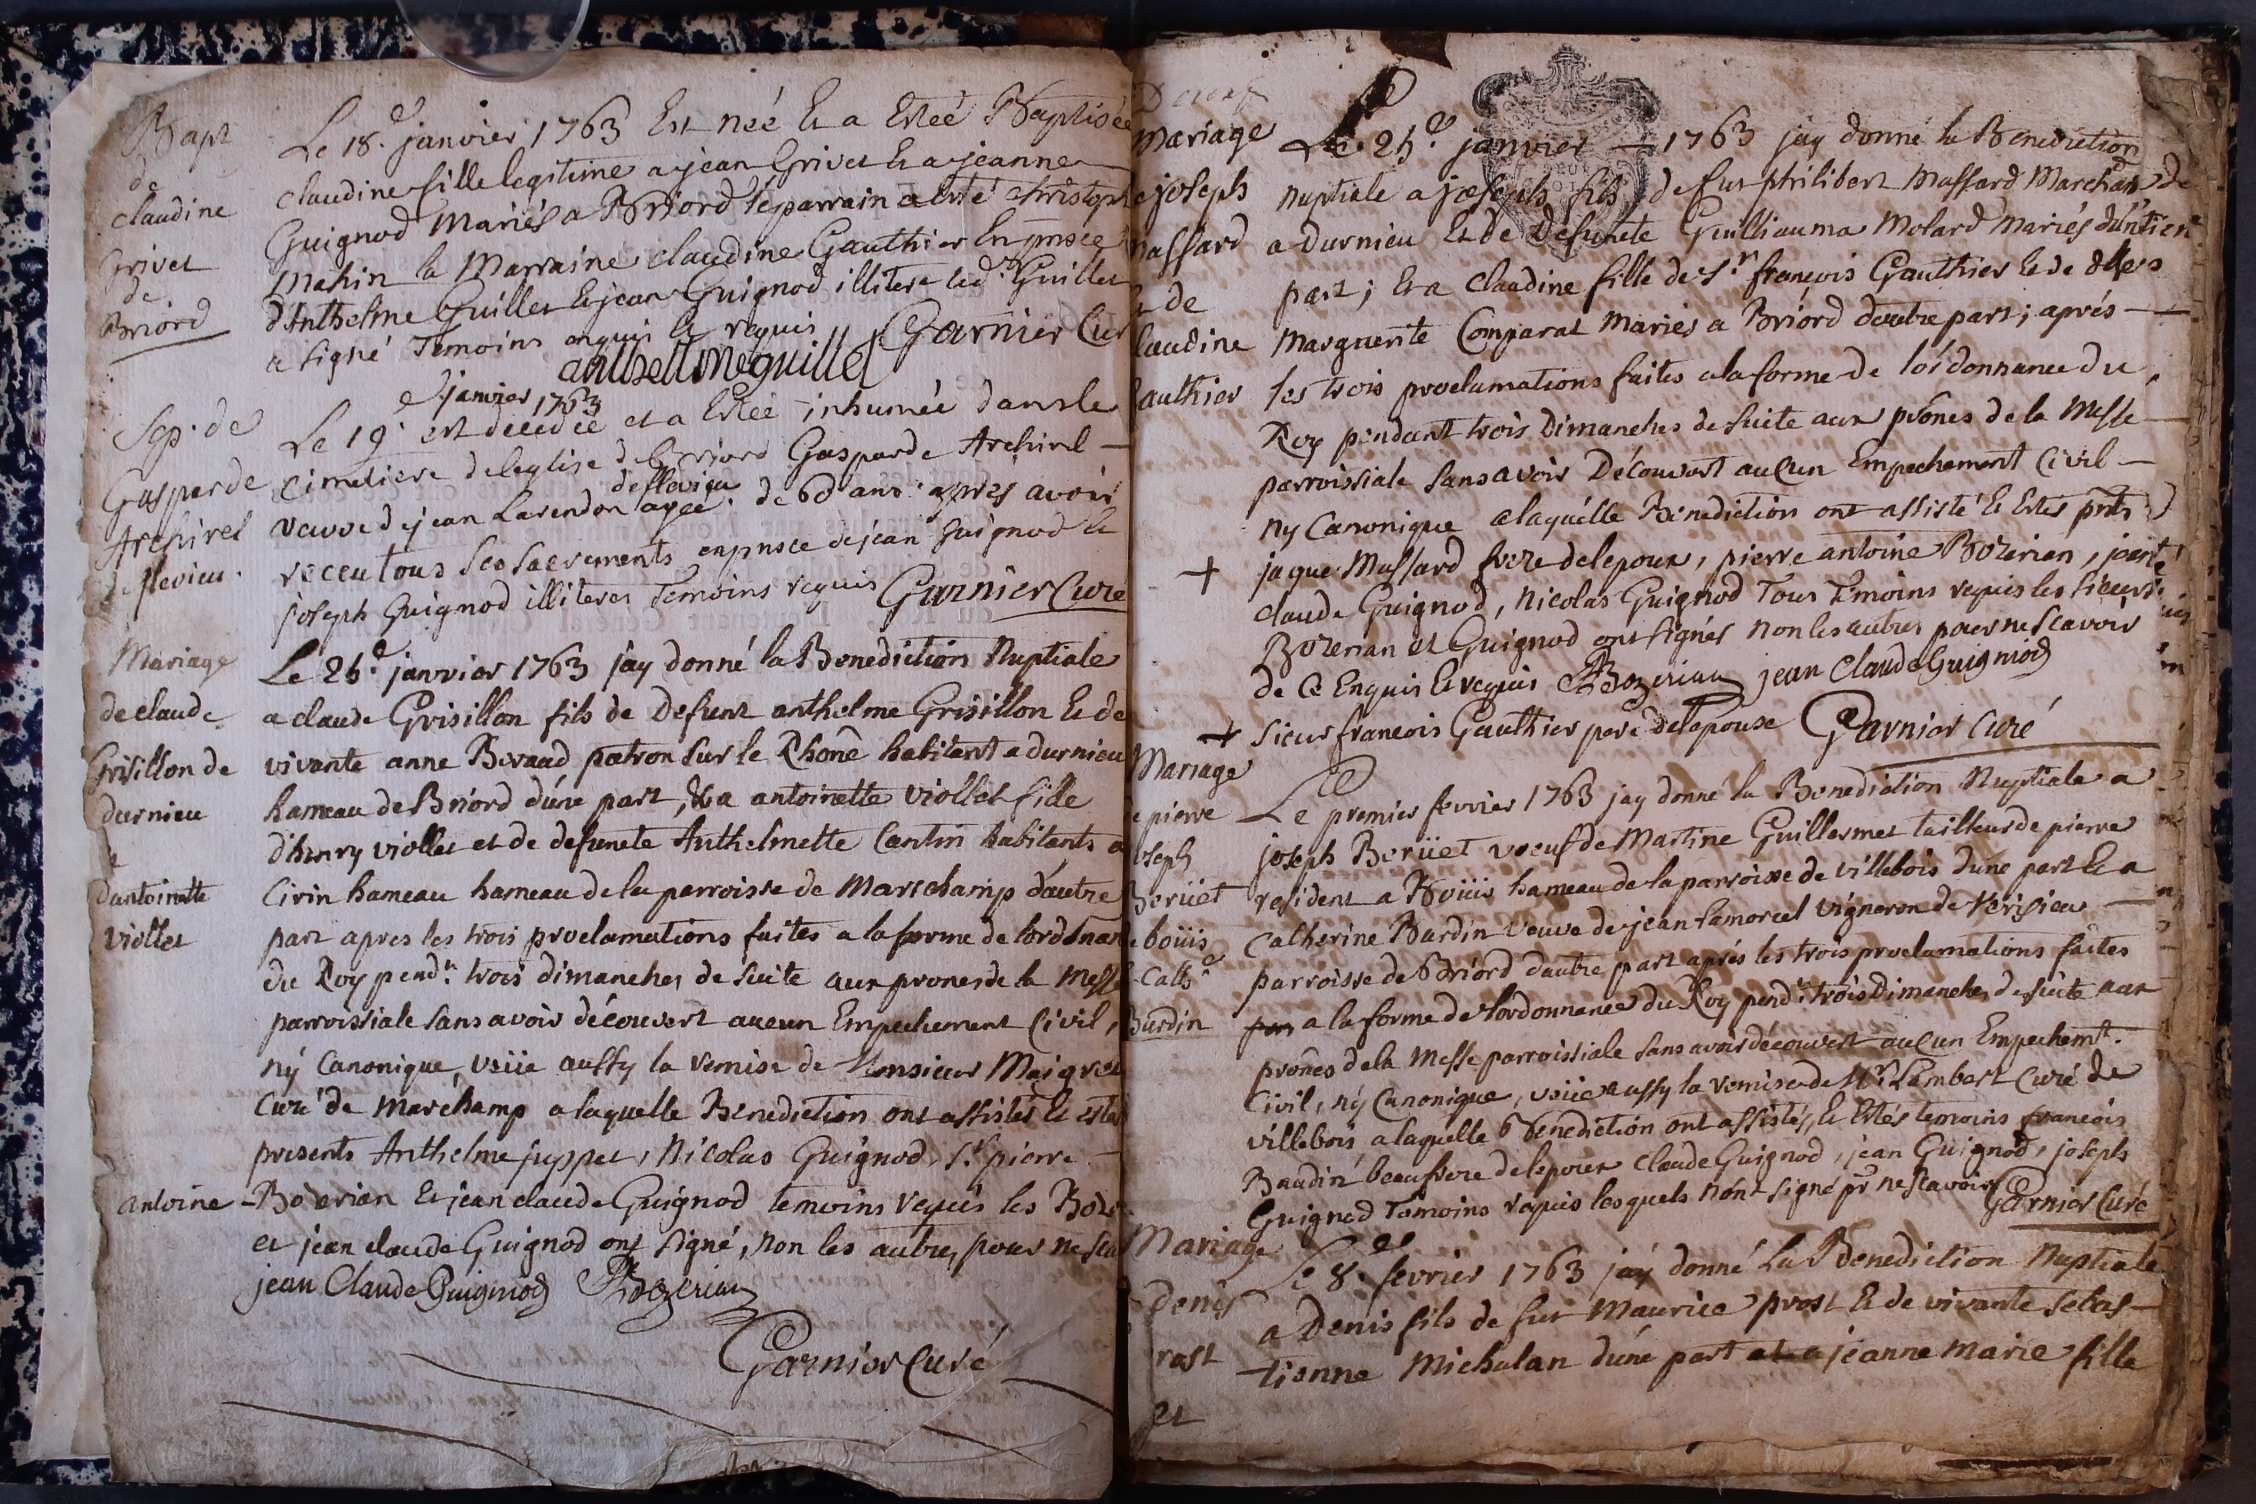 Bapt
de
claudine
Grivet
de
Briord
Le 18.e janvier 1763 Est née Et a Estée Baptisée
claudine fille legitime a jean Grivet Et a jeanne
Guignod Mariés a Briord le parrain a esté christoph
Mahin la Marraine claudine Gauthier En pnsce
d'Anthelme Guillet Et jean Guignod illitere led. Guillet
a signé Temoins enquis Et requis Garnier Cur
anthellme guillet
Sep. de
Gasparde
Archirel
de flevieu.
e janvier 1763
Le 19. est decedée et a Estée inhumée dans le
cimetiere de leglise de Briord Gasparde Archirel
de flevieu
veuve de jean Larendon agée de 60 ans apres avoir
receu tous ses sacrements en pnsce de jean Guignod Et
joseph Guignod illiteres Temoins requis Garnier Curé
Mariage
de claude
Grisillon de
durnieu
et
dantoinette
viollet
Le 25.e janvier 1763 jay donné la Benediction Nuptiale
a claude Grisillon fils de Defunt anthelme Grisillon Et de
vivante anne Beraud patron sur le Rhone habitant a durnieu
hameau de Briord d'une part, Et a antoinette viollet fille
d'henry viollet et de defuncte Anthelmette Cantin habitants a
Cirin hameau hameau de la parroisse de Marchamp d'autre
part apres les trois proclamations faites a la forme de lordonan
du Roy pendt. trois dimanches de suite aux prones de la Messe
parroissiale sans avoir découvert aucun Empechement Civil,
ny Canonique, vüe aussy la remise de Monsieur Maigret
Curé de Marchamp a laquelle Benediction ont assistés Et estés
presents Anthelme juppet, Nicolas Guignod, Sr. pierre
antoine - Bozerian Et jean claude Guignod temoins requis les Boze
et jean claude Guignod ont signé, non les autres pour ne sca
jean Claude Guignod Bozerian
Garnier Curé
Mariage
e joseph
massard
Et de
laudine
Gauthier
Le 25.e janvier 1763 jay donné la Benediction
Nuptiale a joseph fils de fut philibert Massard Marchan de
a durnieu Et de Defuncte Guilliauma Molard Mariés d'un
part; Et a Claudine fille de Sr. françois Gauthier Et de dlle
Marguerite Comparat Mariés a Briord d'autre part; aprés
les trois proclamations faites a la forme de lordonnance du
Roy pendant trois Dimanches de suite aux prônes de la Messe
parroissiale sans avoir Découvert aucun Empechement Civil
ny Canonique a laquélle Benediction ont assisté Et Estés pnts
+ jaque Massard frere de lepoux, pierre antoine Bozerian, jean
claude Guignod, Nicolas Guignod Tous Temoins requis les sieurs
Bozerian et Guignod ont signés non les autres pour ne scavoir
de Ce Enquis Et requis Bozerian jean Claude Guignod
+ sieur francois Gauthier pere de lepouse Garnier Curé
Mariage
e pierre
joseph
Berüet
e boüis
Cathe
Burdin
Le premier fevrier 1763 jay donné la Benediction Nuptiale a
joseph Berüet voeuf de Martine Guillermet tailleur de pierre
resident a Boüis hameau de la parroisse de villebois d'une part Et a
Catherine Burdin veuve de jean Lamorcel vigneron de Verisieu
parroisse de Briord d'autre part aprés les trois proclamations faites
a la forme de lordonnance du Roy pendt. trois Dimanches de suite aux
prônes de la Messe parroissiale sans avoir découvert aucun Empechemt.
Civil, ny Canonique, vüe aussy la remise de Mr. Lambert Curé de
villebois, a laquelle Benediction ont assistés, Et Estés temoins francois
Baudin beaufrere de lepoux claude Guignod, jean Guignod, joseph
Guignod Temoins requis lesquels n'ont signé pr. ne scavoir Garnier Curé
Mariage
Denis
rost
et
Le 8.e fevrier 1763 jay donné La Benediction Nuptiale
a Denis fils de fut Maurice prost Et de vivante sebas-
tienne Michalan d'une part et a jeanne Marie fille